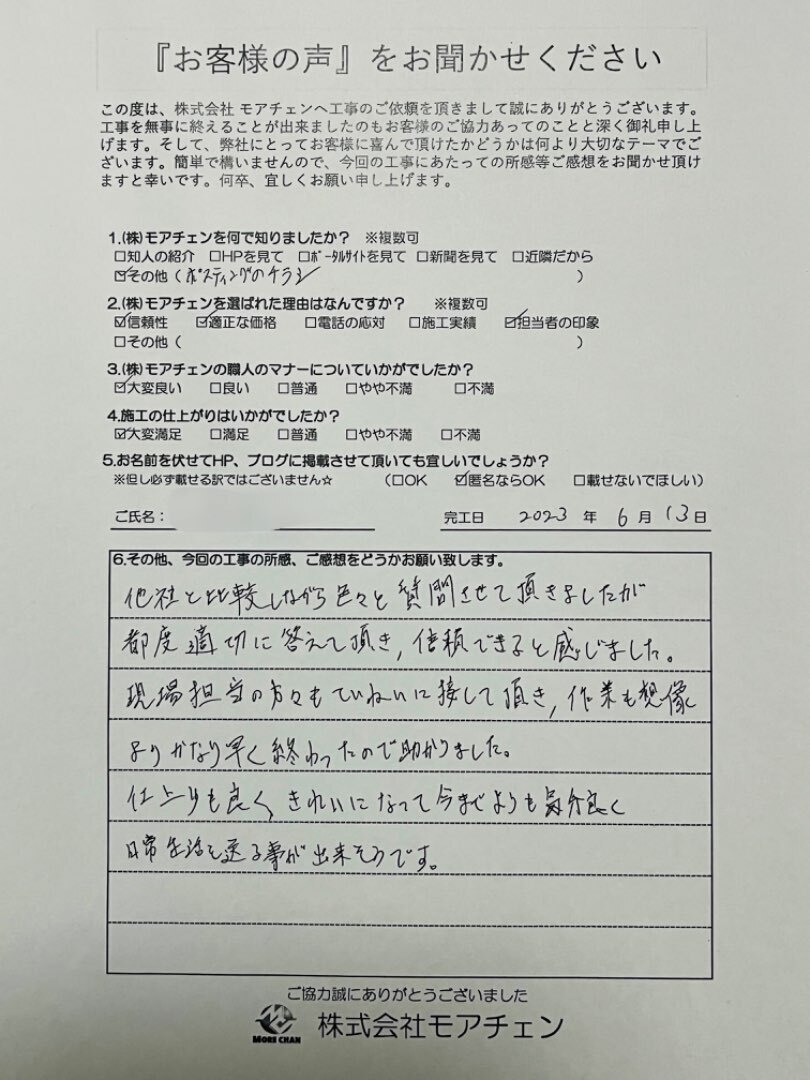 『お客様の声』をお聞かせください
この度は、株式会社 モアチェンへ工事のご依頼を頂きまして誠にありがとうございます。
工事を無事に終えることが出来ましたのもお客様のご協力あってのことと深く御礼申し上
げます。そして、弊社にとってお客様に喜んで頂けたかどうかは何より大切なテーマでご
ざいます。簡単で構いませんので、今回の工事にあたっての所感等ご感想をお聞かせ頂け
ますと幸いです。何卒、宜しくお願い申し上げます。
1.(株)モアチェンを何で知りましたか? ※複数可
□知人の紹介 □HPを見て □ポータルサイトを見て □新聞を見て □近隣だから
☑その他 ( ポスティングのチラシ )
2.(株)モアチェンを選ばれた理由はなんですか? ※複数可
☑信頼性 ☑適正な価格 □電話の応対 □施工実績 ☑担当者の印象
□その他 ( )
3.(株)モアチェンの職人のマナーについていかがでしたか?
☑大変良い □良い □普通 □やや不満 □不満
4.施工の仕上がりはいかがでしたか?
☑大変満足 □満足 □普通 □やや不満 □不満
5.お名前を伏せてHP、ブログに掲載させて頂いても宜しいでしょうか?
※但し必ず載せる訳ではございません☆ (□OK ☑匿名ならOK □載せないでほしい)
ご氏名: 完工日 2023 年 6 月 13 日
6.その他、今回の工事の所感、ご感想をどうかお願い致します。
他社と比較しながら色々と質問させて頂きましたが
都度適切に答えて頂き,信頼できると感じました。
現場担当の方々もていねいに接して頂き,作業も想像
よりかなり早く終わったので助かりました。
仕上りも良く,きれいになって今までよりも気分良く
日常生活を送る事が出来そうです。
ご協力誠にありがとうございました
MORE CHAN 株式会社モアチェン